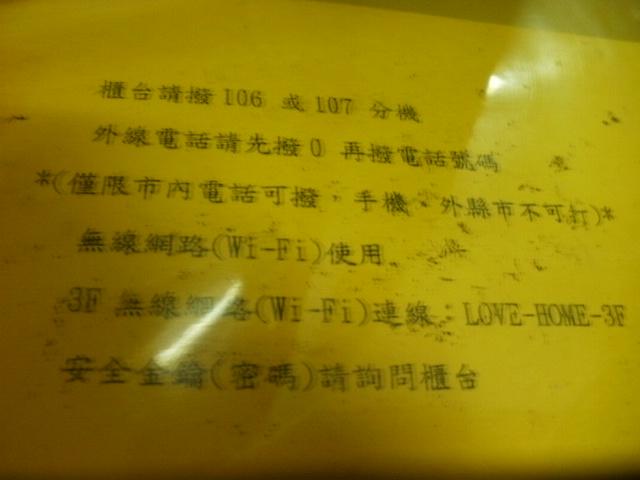 櫃台請撥 106 或 107 分機
外線電話請先撥 0 再撥電話號碼
*(僅限市內電話可撥，手機、外縣市不可打)*
無線網路(Wi-Fi)使用
3F 無線網路(Wi-Fi)連線：LOVE-HOME-3F
安全金鑰(密碼)請詢問櫃台